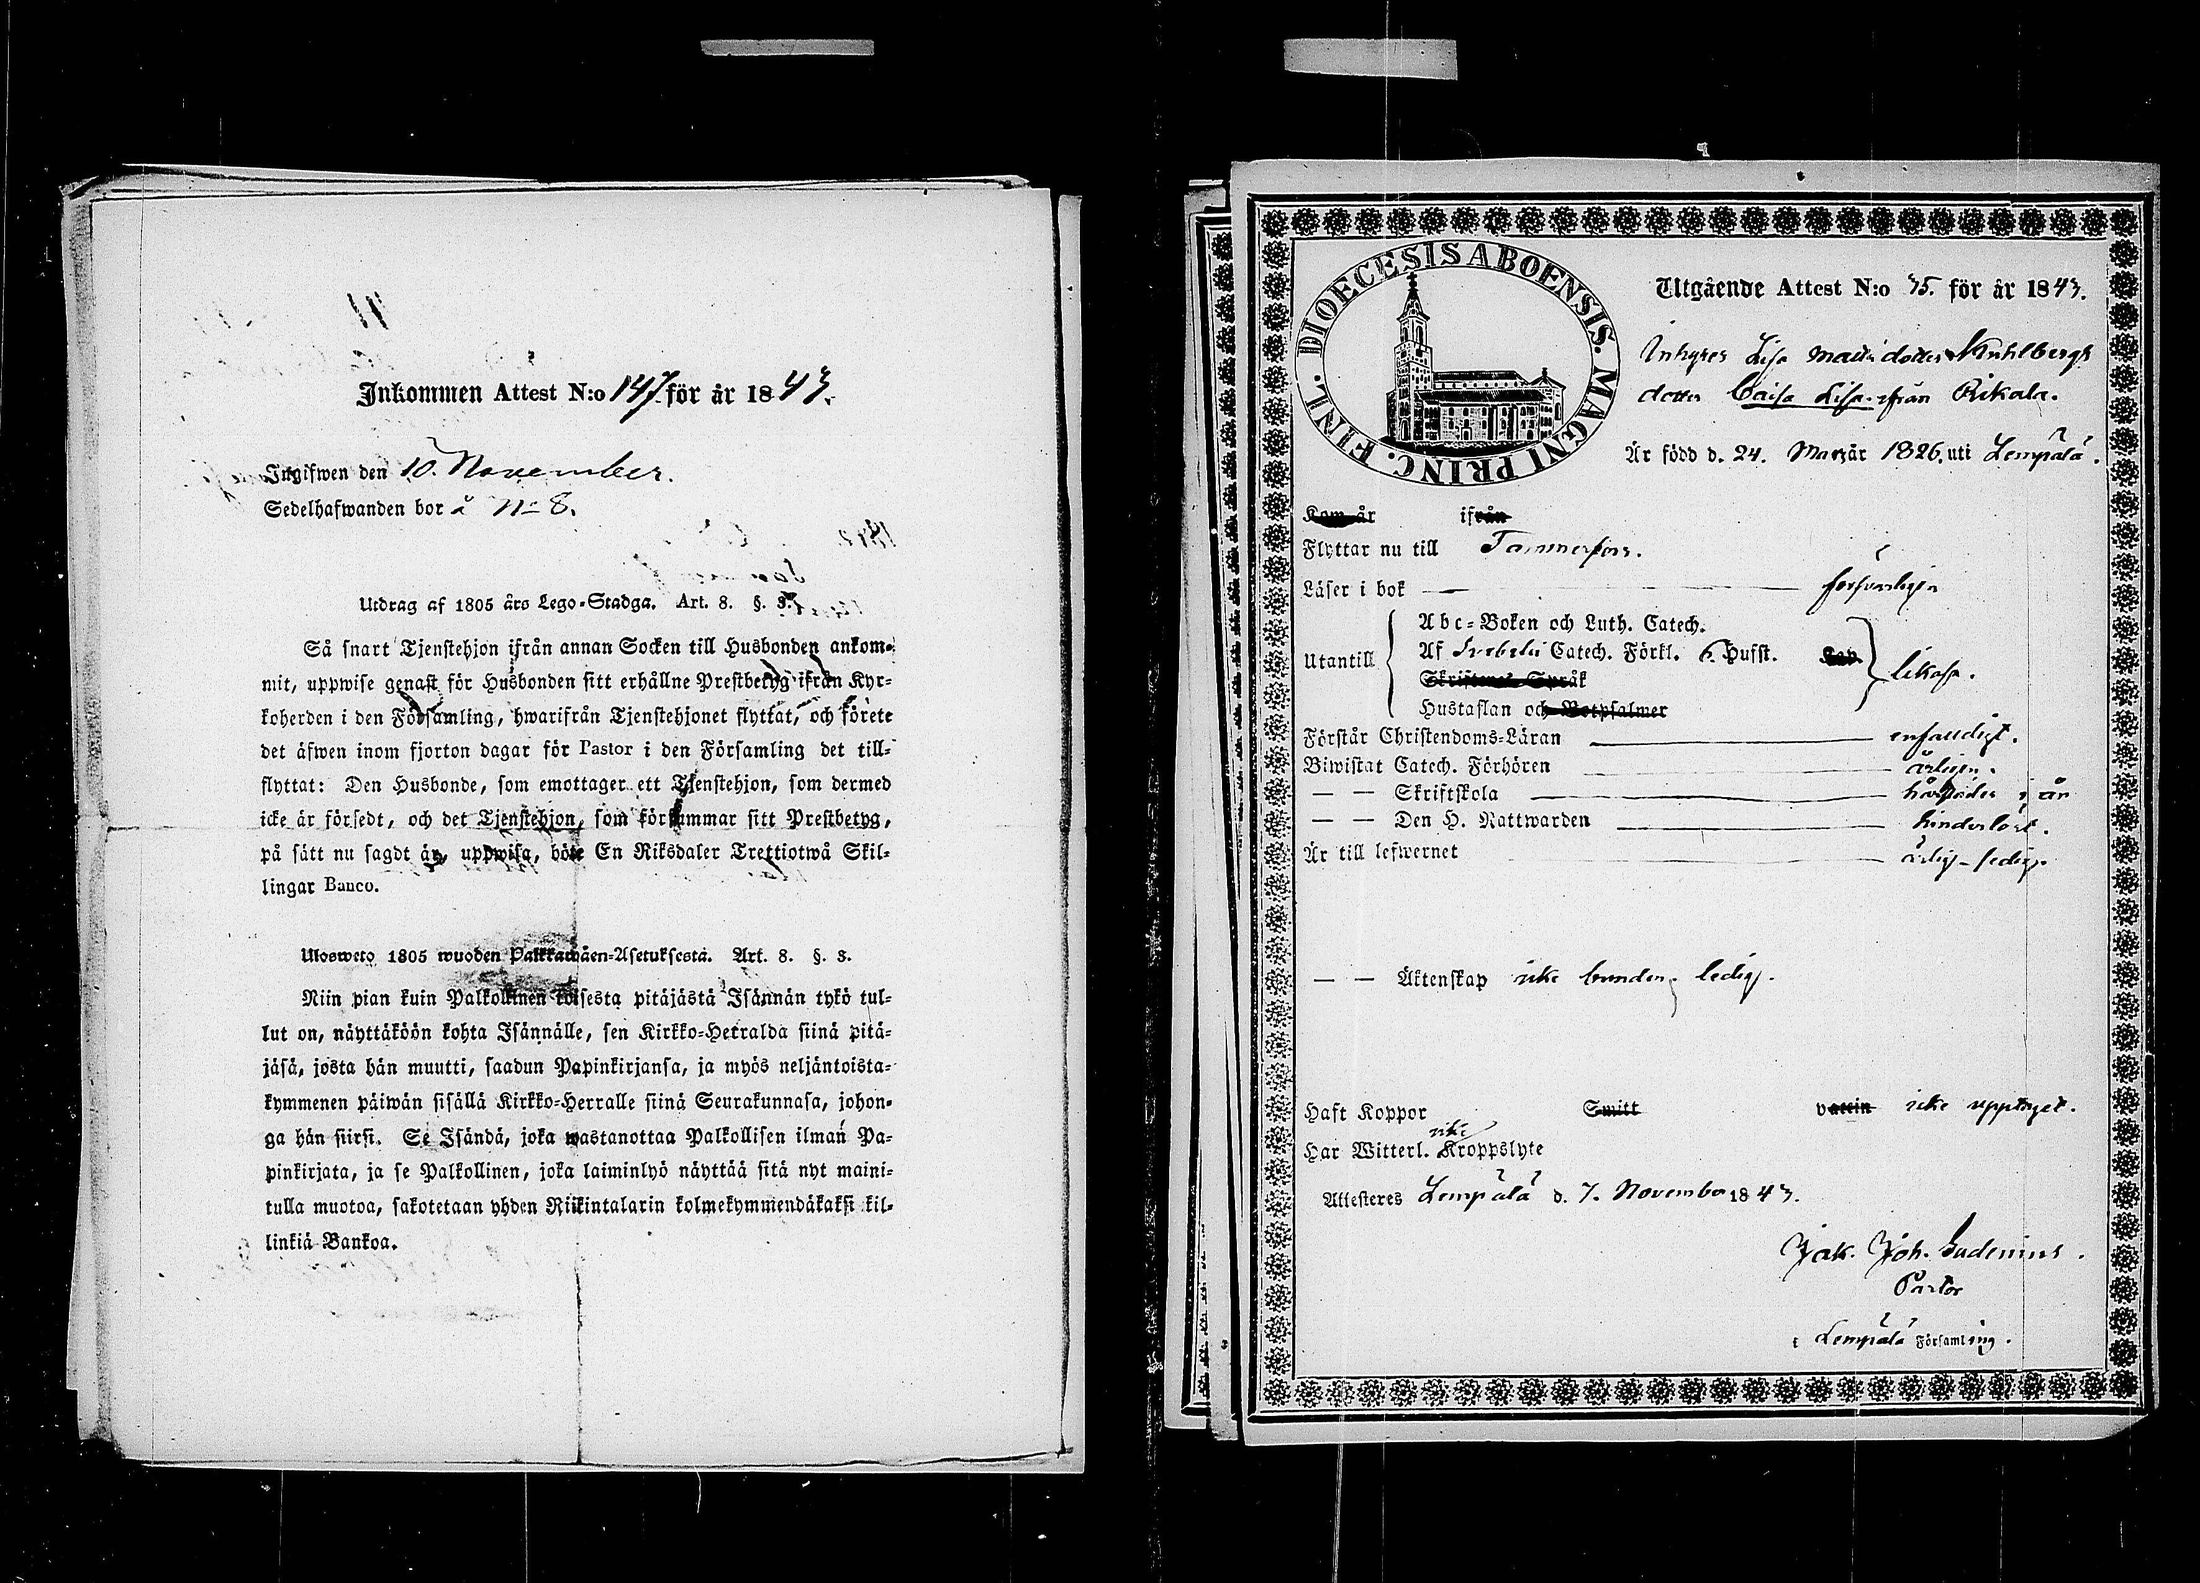 Inkommen Attest N:o 147 för år 1843.
Ingifwen den 10. November.
Sedelhafwanden bor å N:o 8.
Utdrag af 1805 års Lego-Stadga. Art. 8. §. 3.
Så snart Tjenstehjon ifrån annan Socken till Husbonden ankom-
mit, uppwise genast för Husbonden sitt erhållne Prestbetyg ifrån Kyr-
koherden i den Församling, hwarifrån Tjenstehjonet flyttat, och förete
det äfwen inom fjorton dagar för Pastor i den Församling det till-
flyttat: Den Husbonde, som emottager ett Tjenstehjon, som dermed
icke är försedt, och det Tjenstehjon, som försummar sitt Prestbetyg,
på sätt nu sagdt är, uppwisa, böte En Riksdaler Trettiotwå Skil-
lingar Banco.
Ulosweto 1805 wuoden Palkkawäen-Asetuksesta. Art. 8. §. 3.
Niin pian kuin Palkollinen toisesta pitäjästä Isännän tykö tul-
lut on, näyttäköön kohta Isännälle, sen Kirkko-Herralda siinä pitä-
jäsä, josta hän muutti, saadun Papinkirjansa, ja myös neljäntoista-
kymmenen päiwän sisällä Kirkko-Herralle siinä Seurakunnasa, johon-
ga hän siirsi. Se Isändä, joka wastanottaa Palkollisen ilman Pa-
pinkirjata, ja se Palkollinen, joka laiminlyö näyttää sitä nyt maini-
tulla muotoa, sakotetaan yhden Riikintalarin kolmekymmendäkaksi kil-
linkiä Bankoa.
DIOECESIS ABOENSIS. MAGNI PRINC. FINL.
Utgående Attest N:o 75. för år 1843.
Inhyses Lisa dotter Kuhlbergs
dotter Caisa Lisa ifrån Rikala.
Är född d. 24. Mars år 1826. uti Lempälä.
Kom år ifrån
Flyttar nu till Tammerfors.
Läser i bok förswarligen
Utantill
Abc-Boken och Luth. Catech.
Af Svebelii Catech. Förkl. 6. Hufst. Kap.
likaså.
Skriftenes Språk
Hustaflan och Botpsalmer
Förstår Christendoms-Läran enfaldigt.
Biwistat Catech. Förhören årligen.
— — Skriftskola i år
— — Den H. Nattwarden hinderlöst.
Är till lefwernet ärlig – fredlig.
— — Äktenskap icke bunden, ledig.
Haft Koppor Smitt vaccin icke upptaget.
icke
Har Witterl. Kroppslyte
Attesteres Lempälä d. 7. November 1843.
Jak. Joh. Gadenius.
Pastor
i Lempälä Församling.